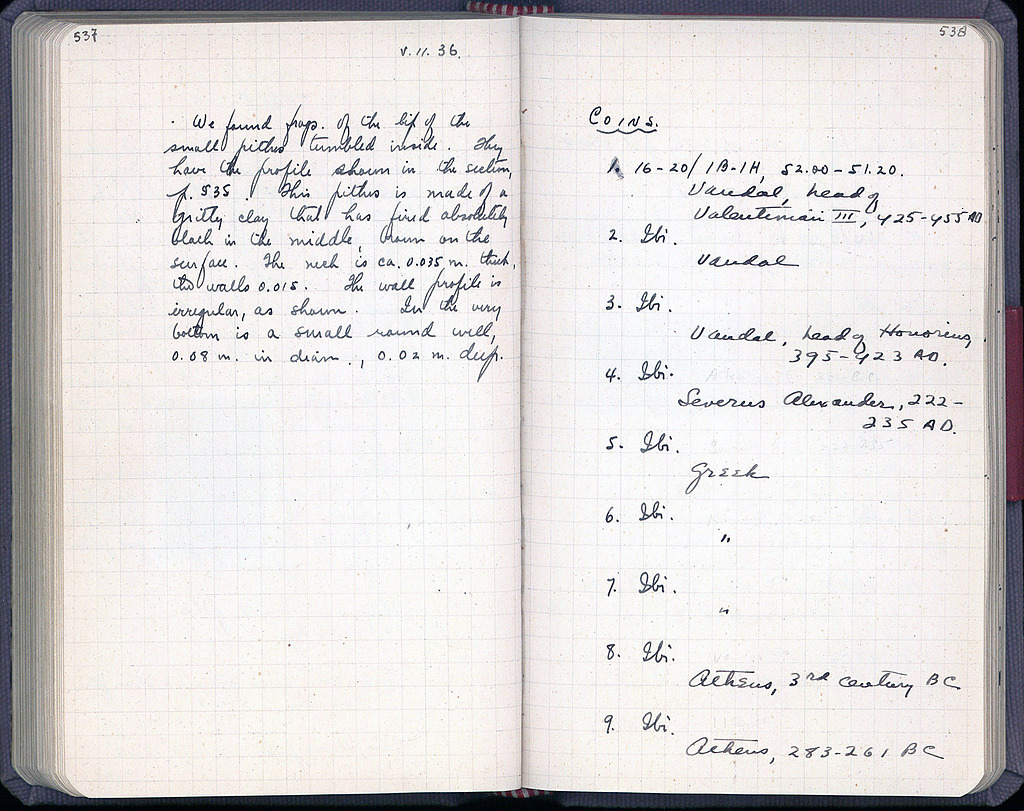 537
V. 11. 36.
We found frags. of the lip of the
small pithos tumbled inside. They
have the profile shown in the section,
p. 535. This pithos is made of a
gritty clay that has fired absolutely
black in the middle, brown on the
surface. The neck is ca. 0.035 m. thick,
the walls 0.015. The wall profile is
irregular, as shown. In the very
bottom is a small round well,
0.08 m. in diam., 0.02 m. deep.
538
COINS.
1. 16-20/ 1B-1H, 52.00-51.20.
Vandal, head of
Valentinian III, 425-455 AD
2. Ibi.
Vandal
3. Ibi.
Vandal, head of Honorius,
395-423 AD.
4. Ibi.
Severus Alexander, 222-
235 AD.
5. Ibi.
Greek
6. Ibi.
"
7. Ibi.
"
8. Ibi.
Athens, 3rd century BC
9. Ibi.
Athens, 283-261 BC